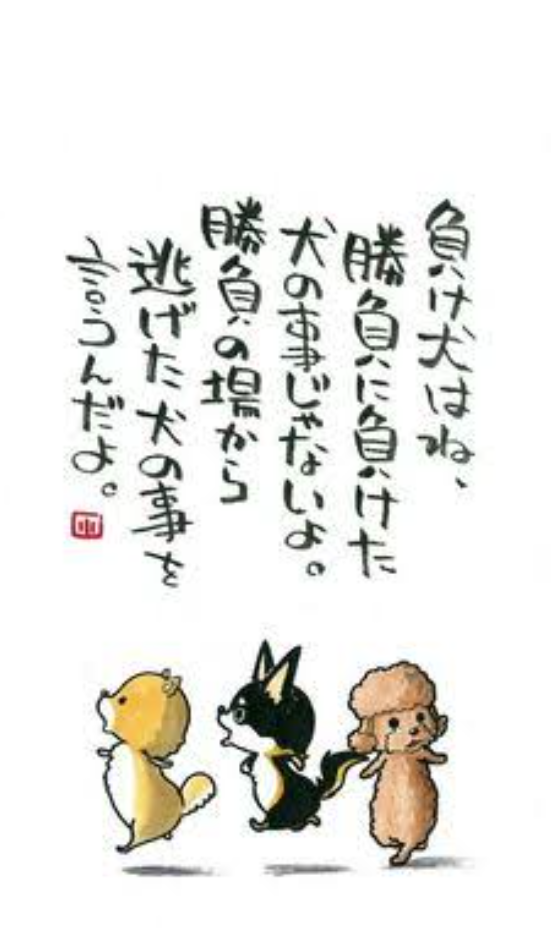 負け犬はね、
勝負に負けた
犬の事じゃないよ。
勝負の場から
逃げた犬の事を
言うんだよ。